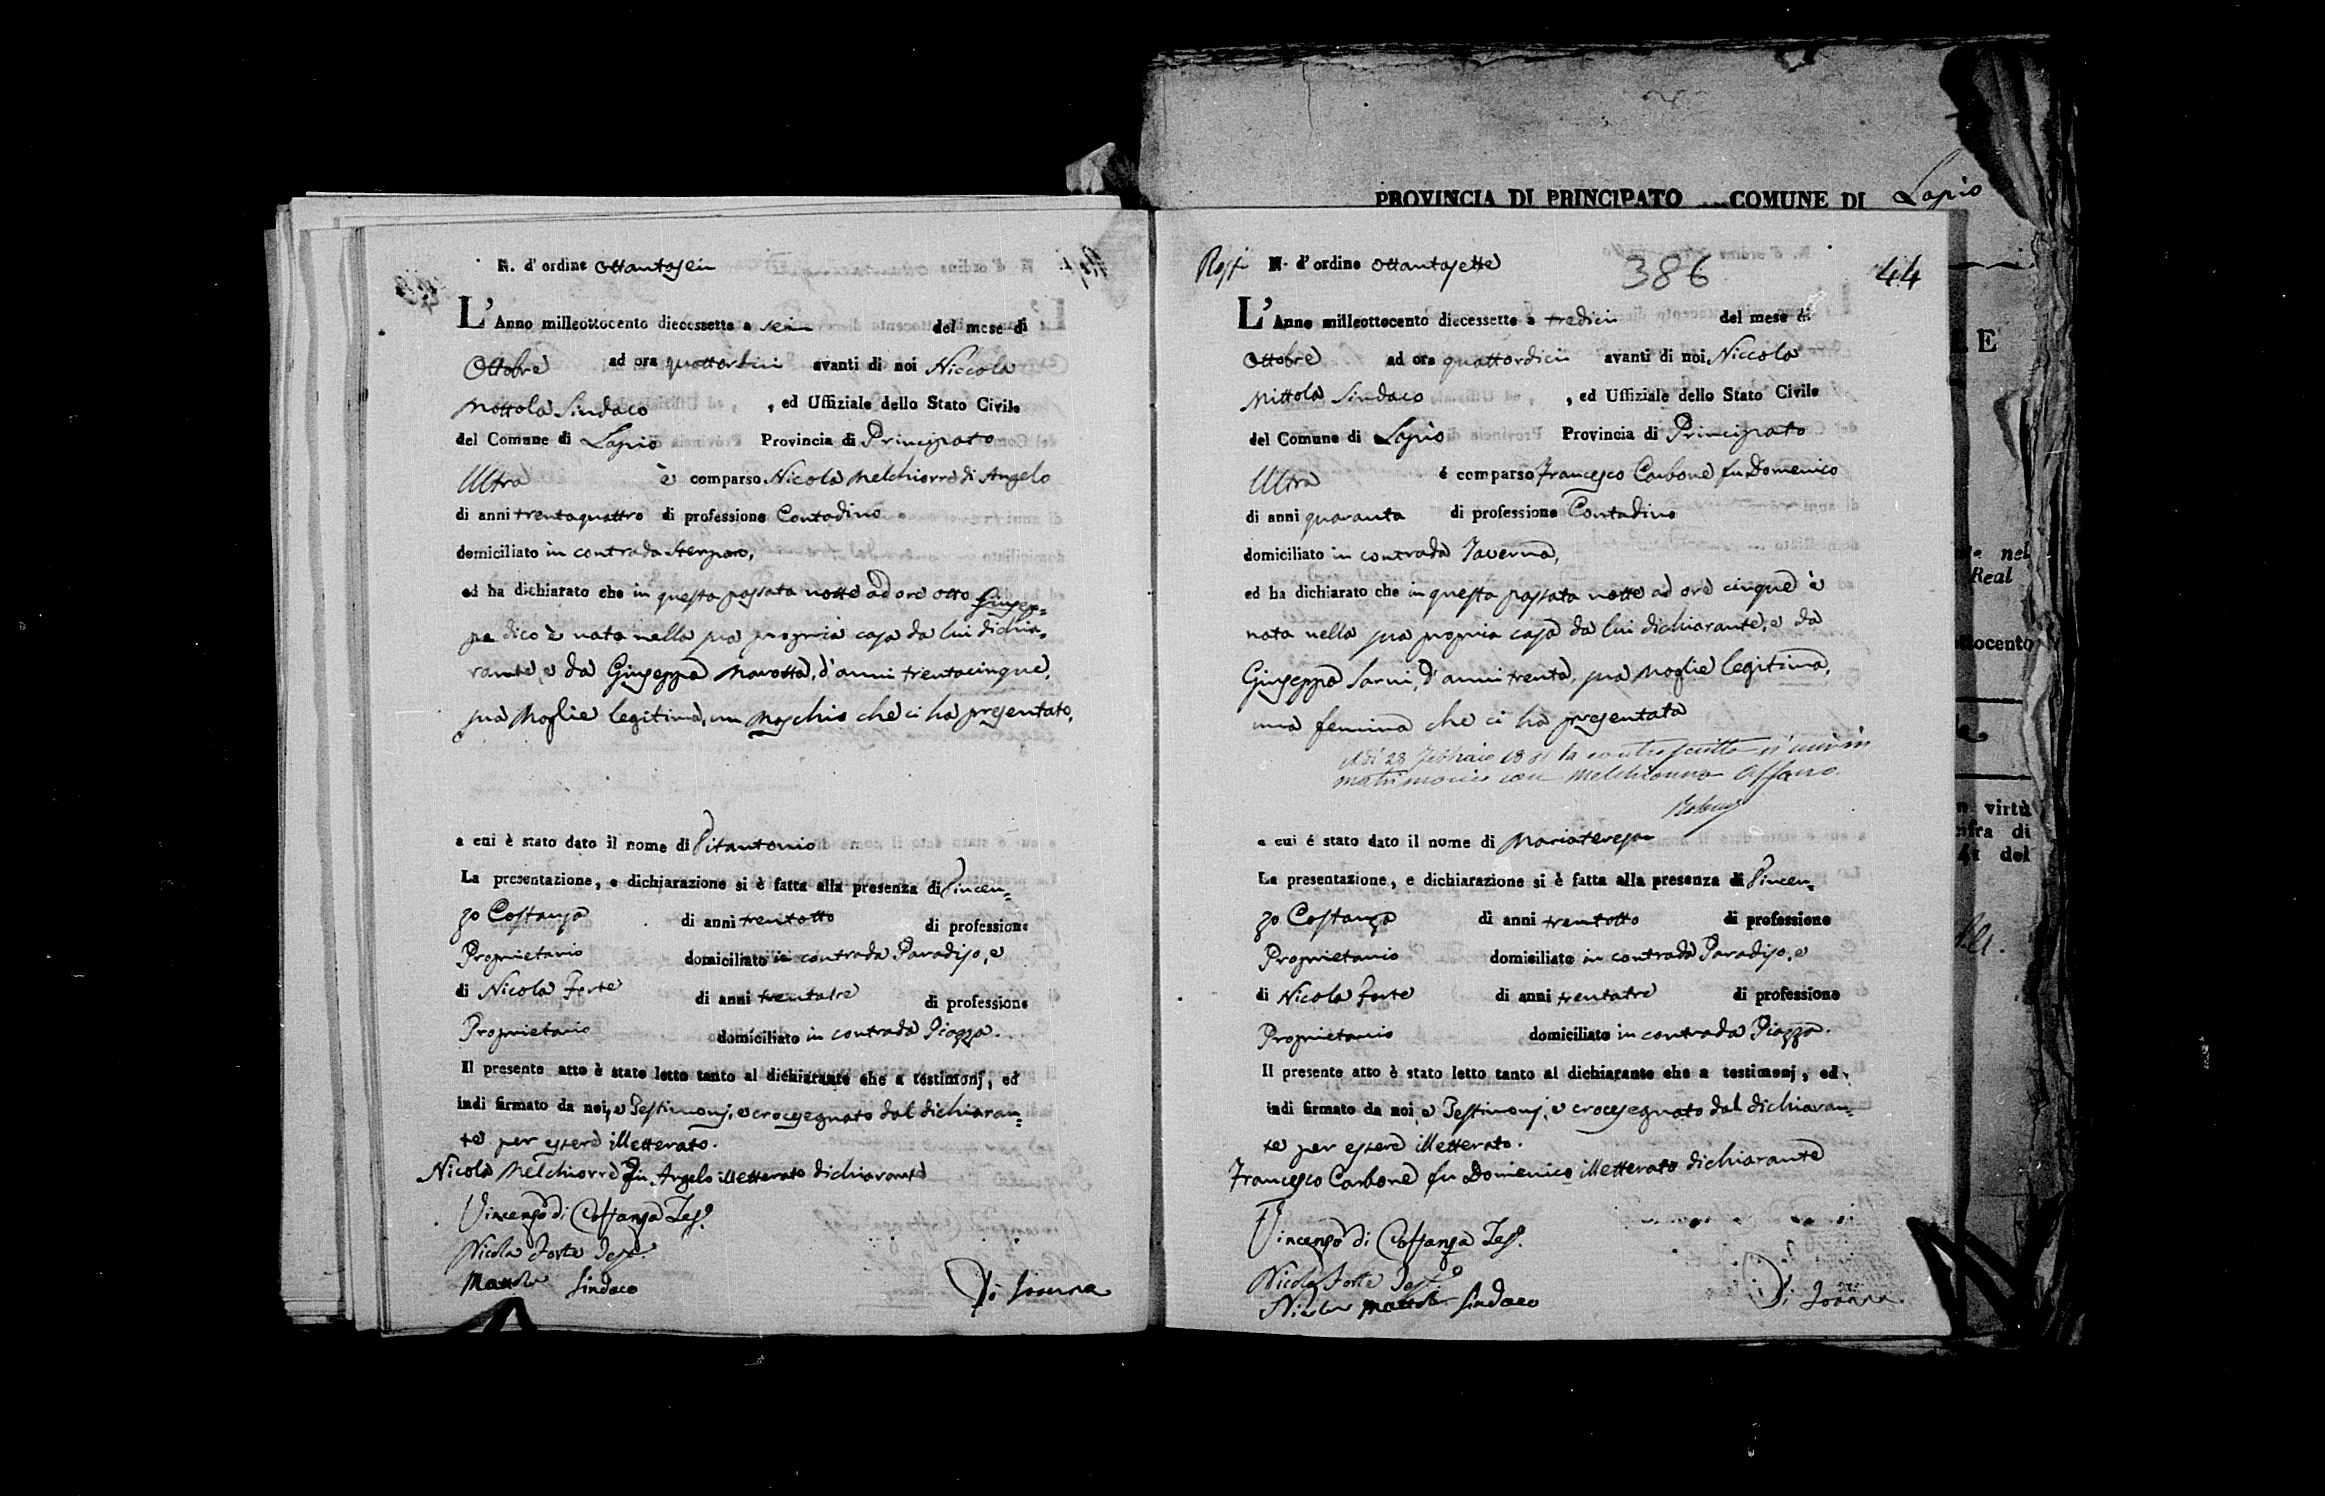 N. d'ordine ottantasei
L'Anno milleottocento diecessette a sei del mese di
Ottobre ad ora quattordici avanti di noi Niccola
Mottola Sindaco , ed Uffiziale dello Stato Civile
del Comune di Lapio Provincia di Principato
Ultra è comparso Nicola Melchiorre di Angelo
di anni trentaquattro di professione Contadino
domiciliato in contrada
ed ha dichiarato che in questa passata notte ad ore otto Giusep=
pa dico è nato nella sua propria casa da lui dichia=
rante, e da Giuseppa Marotta, d'anni trentacinque,
sua Moglie legitima, un Maschio che ci ha presentato,
a cui è stato dato il nome di Vitantonio
La presentazione, e dichiarazione si è fatta alla presenza di Vincen=
zo Costanza di anni trentotto di professione
Proprietario domiciliato in contrada Paradiso, e
di Nicola Forte di anni trentatre di professione
Proprietario domiciliato in contrada Piazza.
Il presente atto è stato letto tanto al dichiarante che a testimonj, ed
indi firmato da noi, e Testimonj, e crocesegnato dal dichiaran=
te per essere illetterato.
Nicola Melchiorre di Angelo illetterato dichiarante
Vincenzo di Costanza Tes.º
Nicola Forte Tesº.
Mottola Sindaco
Di Ioanna
PROVINCIA DI PRINCIPATO COMUNE DI Lapio
N. d'ordine ottantasette
386
44
L'Anno milleottocento diecessette a tredici del mese di
Ottobre ad ora quattordici avanti di noi Niccola
Mittola Sindaco , ed Uffiziale dello Stato Civile
del Comune di Lapio Provincia di Principato
Ultra é comparso Francesco Carbone fu Domenico
di anni quaranta di professione Contadino
domiciliato in contrada Taverna,
ed ha dichiarato che in questa passata notte ad ore cinque è
nata nella sua propria casa da lui dichiarante, e da
Giuseppa Sarni, d'anni trenta, sua Moglie legitima,
una femina che ci ha presentata
Adì 28 Febbraio la controscritta s'unì in
matrimonio con Melchionna
a cui é stato dato il nome di Mariateresa
La presentazione, e dichiarazione si è fatta alla presenza di Vincen=
zo Costanza di anni trentotto di professione
Proprietario domiciliato in contrada Paradiso, e
di Nicola Forte di anni trentatre di professione
Proprietario domiciliato in contrada Piazza.
Il presente atto è stato letto tanto al dichiarante che a testimonj, ed
indi firmato da noi, e Testimonj, e crocesegnato dal dichiaran=
te per essere illetterato.
Francesco Carbone fu Domenico illetterato dichiarante
Vincenzo di Costanza Tes.º
Nicola Forte Tes.º
Nicola Mottola Sindaco
Di Ioanna
E
nel
Real
ttocento
virtù
del